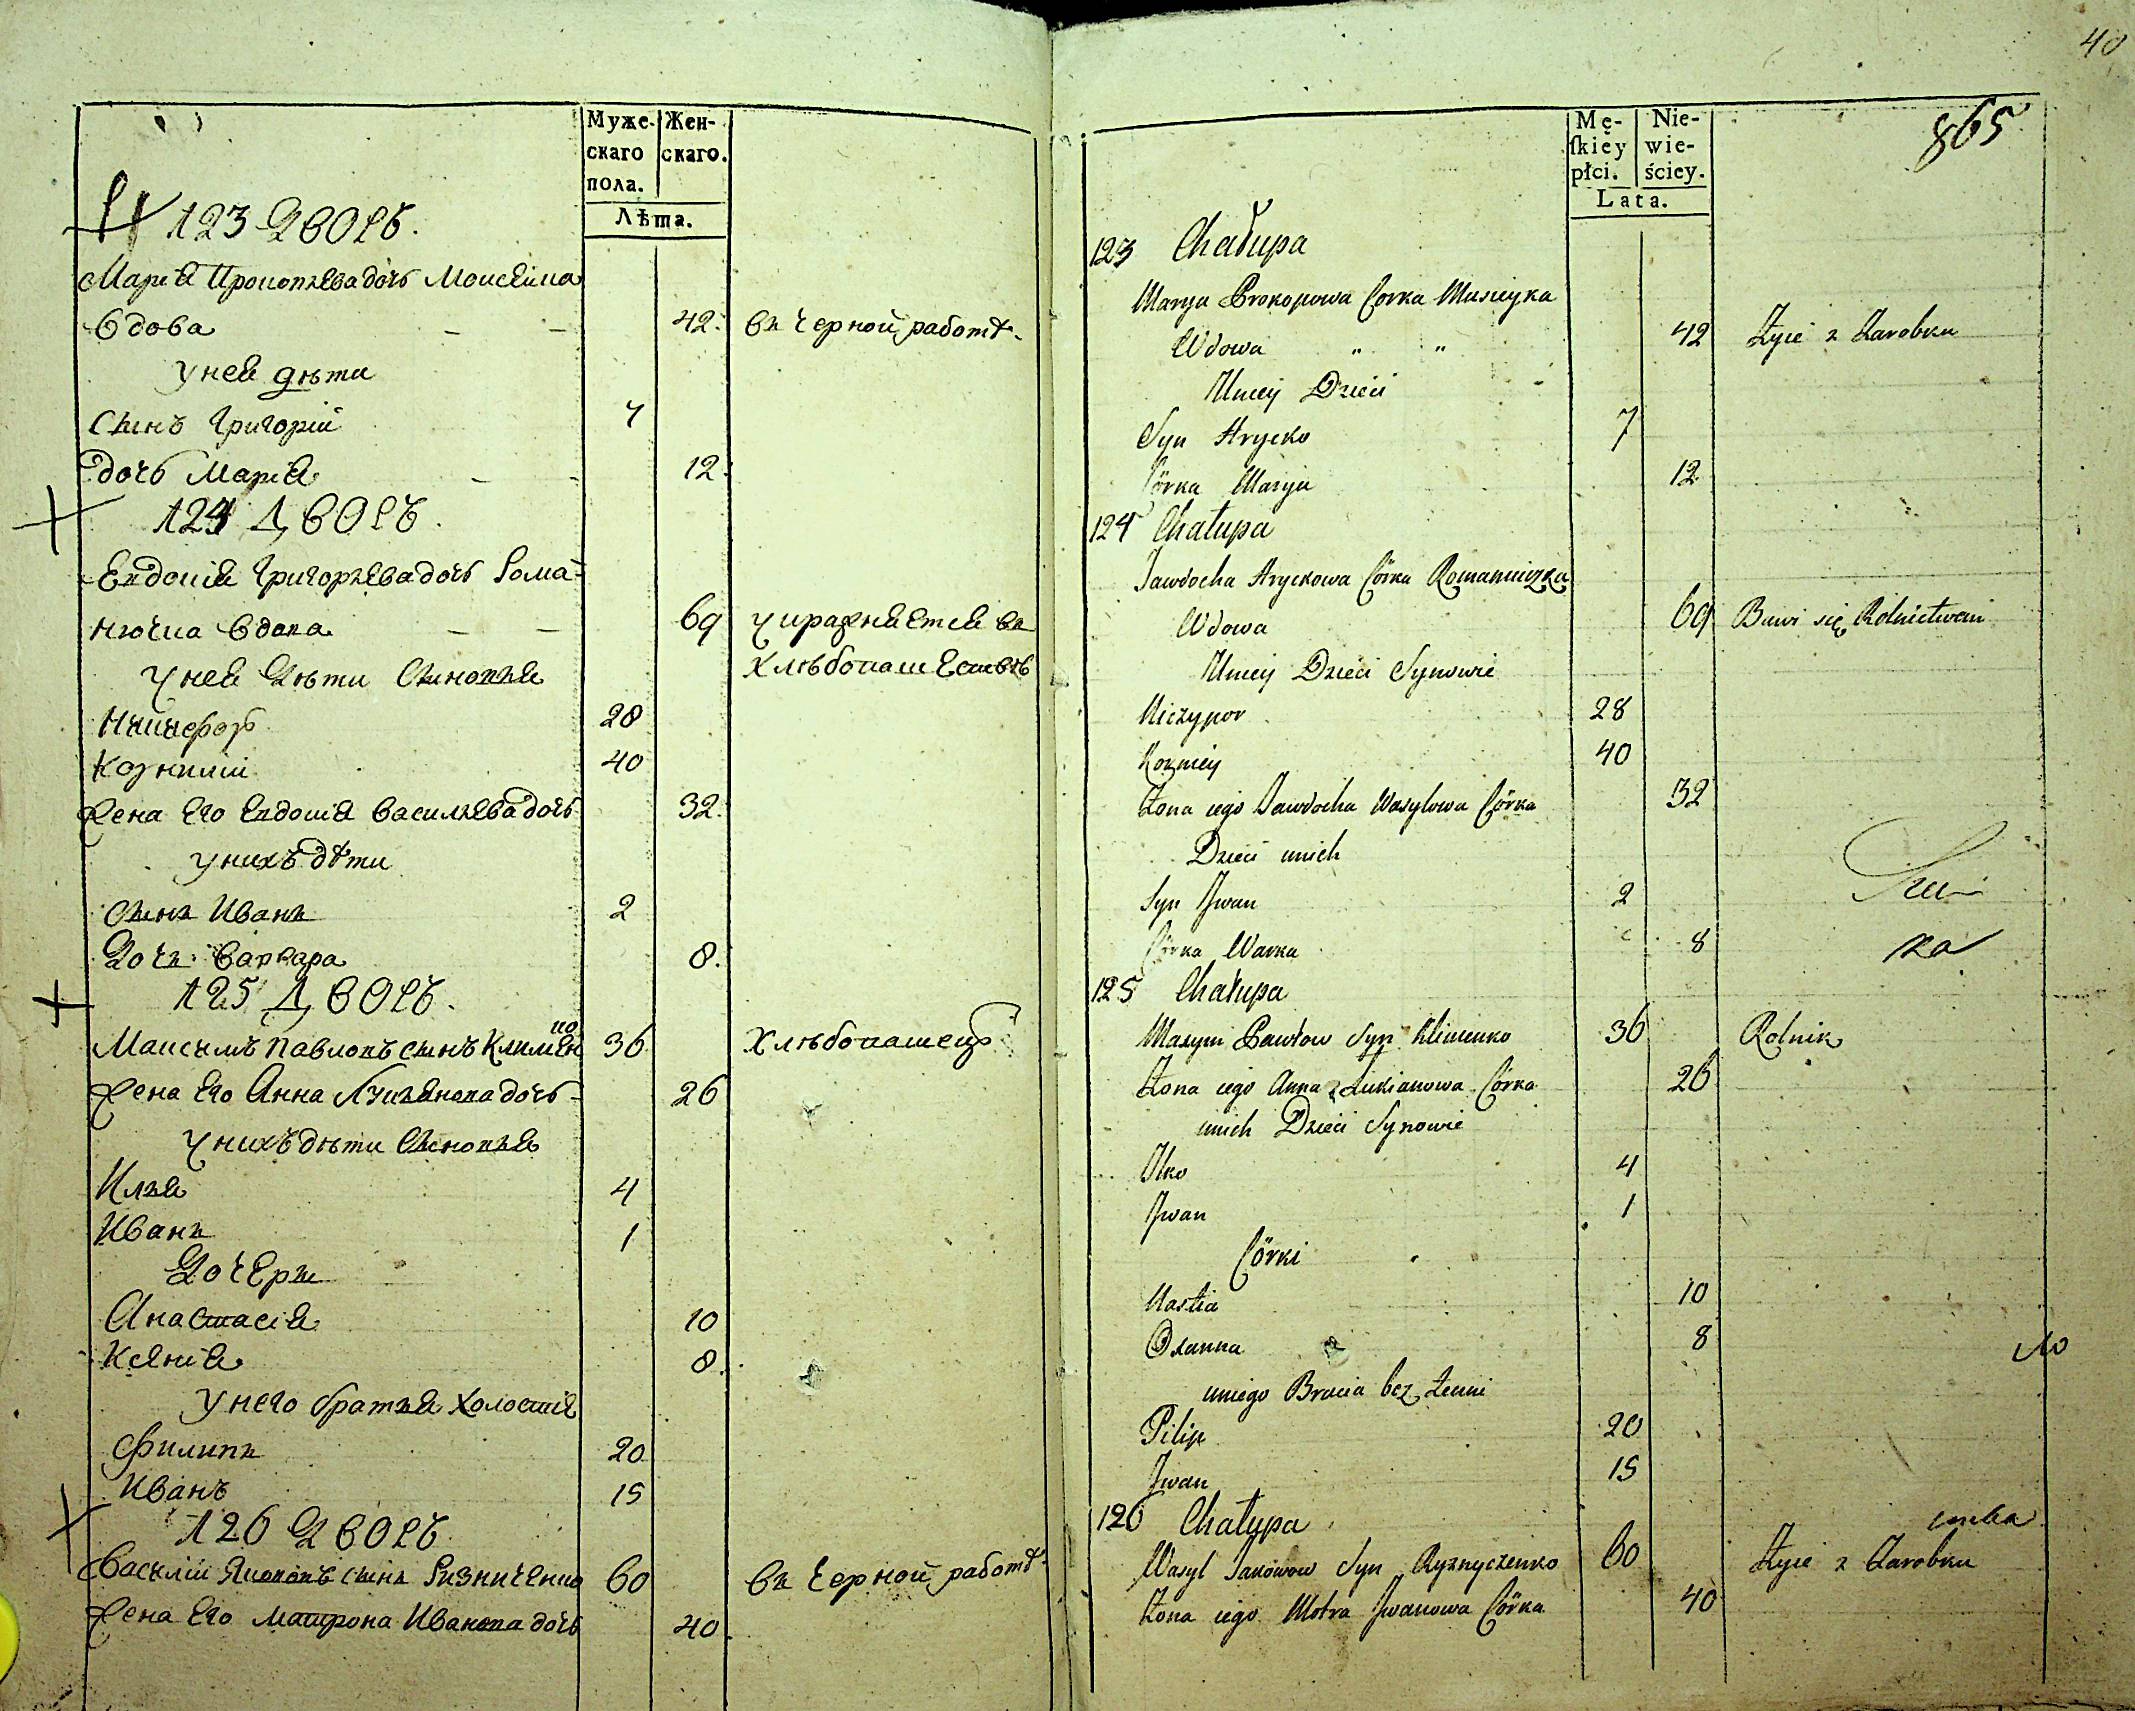 Муже-
скаго
пола.
Жен-
скаго.
Лѣта.
123 Дворъ.
Марія Прокопьева дочь Моисейка
вдова 42. въ черной работѣ.
У нея дѣти
Сынъ Григорій 7
дочь Марія 12.
124 Дворъ.
Евдокія Григорьева дочь Рома-
нючка вдова 69 упражняется въ
хлѣбопашествѣ
У нея дѣти сыновья
Никифоръ 28
Козмій 40
Жена его Евдокія Васильева дочь 32.
У нихъ дѣти
Сынъ Иванъ 2
Дочь Варвара 8.
125 Дворъ.
Максимъ Павловъ сынъ Клименко 36 хлѣбопашецъ
Жена его Анна Лукьянова дочь 26
У нихъ дѣти сыновья
Илья 4
Иванъ 1
Дочери
Анастасія 10
Ксенія 8.
У него братья холостіе
Филипъ 20
Иванъ 15
126 Дворъ
Василій Якововъ сынъ Ризниченко 60 въ черной работѣ
Жена его Матрона Иванова дочь 40
40
865
Mę-
ſkiéy
płci.
Nie-
wie-
ściey.
Lata.
123 Chałupa
Marya Prokopowa Corka Musieyka
Wdowa " " 42 Żyie z Zarobku
Uniey Dzieci
Syn Hrycko 7
Córka Marya 12
124 Chałupa
Jawdocha Hryckowa Córka Romaniuczka
Wdowa 69 Bawi się Rolnictwem
Uniey Dzieci Synowie
Niczypor 28
Kozmiey 40
Żona iego Jawdocha Wasylowa Córka 32
Dzieci unich
Syn Jwan 2
Córka Warka 8
ка
125 Chałupa
Maxym Pawłow Syn Klimenko 36 Rolnik
Żona iego Anna Łukianowa Córka 26
unich Dzieci Synowie
Ilko 4
Jwan 1
Córki
Nastia 10
Oxanna 8
uniego Bracia bez żenni
Pilip 20
Jwan 15
126 Chałupa
Wasyl Jakowow Syn Ryznyczenko 60 Żyie z Zarobku
Żona iego Motra Jwanowa Córka 40